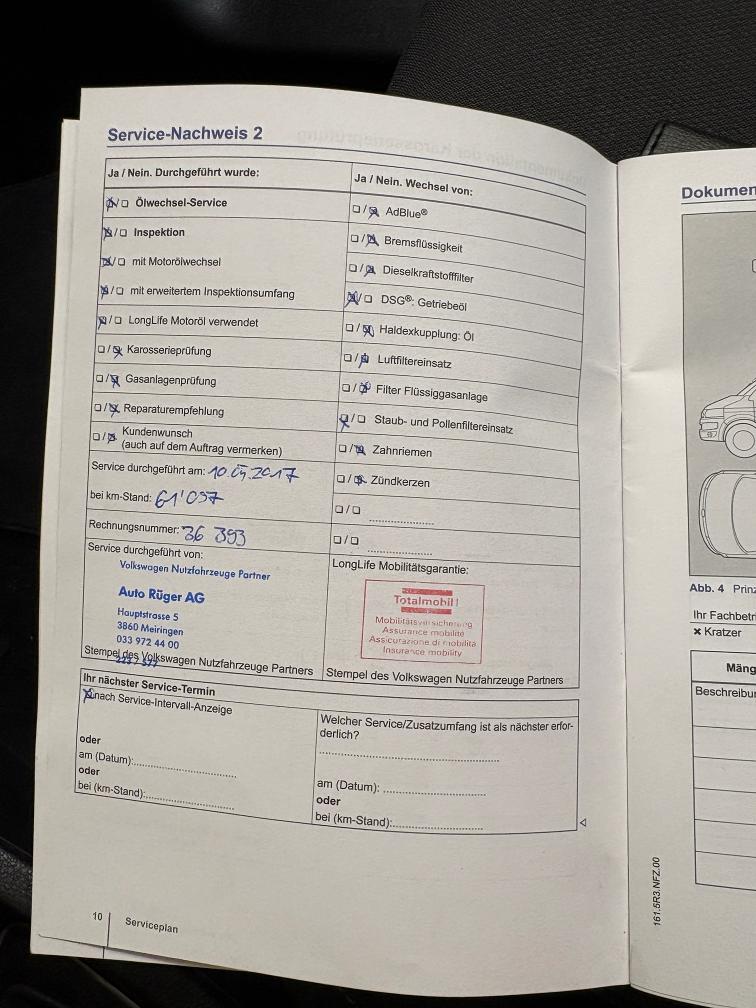 Service-Nachweis 2
Ja / Nein. Durchgeführt wurde:
☒/☐ Ölwechsel-Service
☒/☐ Inspektion
☒/☐ mit Motorölwechsel
☒/☐ mit erweitertem Inspektionsumfang
☒/☐ LongLife Motoröl verwendet
☐/☒ Karosserieprüfung
☐/☒ Gasanlagenprüfung
☐/☒ Reparaturempfehlung
☐/☒ Kundenwunsch
(auch auf dem Auftrag vermerken)
Service durchgeführt am: 10.05.2017
bei km-Stand: 61'037
Rechnungsnummer: 36 393
Service durchgeführt von:
Volkswagen Nutzfahrzeuge Partner
Auto Rüger AG
Hauptstrasse 5
3860 Meiringen
033 972 44 00
Stempel des Volkswagen Nutzfahrzeuge Partners
Ja / Nein. Wechsel von:
☐/☒ AdBlue®
☐/☒ Bremsflüssigkeit
☐/☒ Dieselkraftstofffilter
☒/☐ DSG®: Getriebeöl
☐/☒ Haldexkupplung: Öl
☐/☒ Luftfiltereinsatz
☐/☒ Filter Flüssiggasanlage
☒/☐ Staub- und Pollenfiltereinsatz
☐/☒ Zahnriemen
☐/☒ Zündkerzen
☐/☐ ....................
☐/☐ ....................
LongLife Mobilitätsgarantie:
Totalmobil!
Mobilitätsversicherung
Assurance mobilité
Assicurazione di mobilità
Insurance mobility
Stempel des Volkswagen Nutzfahrzeuge Partners
Ihr nächster Service-Termin
☒ nach Service-Intervall-Anzeige
oder
am (Datum):....................
oder
bei (km-Stand):....................
Welcher Service/Zusatzumfang ist als nächster erfor-
derlich?
....................
am (Datum): ....................
oder
bei (km-Stand):....................
10
Serviceplan
Dokumen
Abb. 4 Prinz
Ihr Fachbetri
✖ Kratzer
Mäng
Beschreibun
161.5R3.NFZ.00